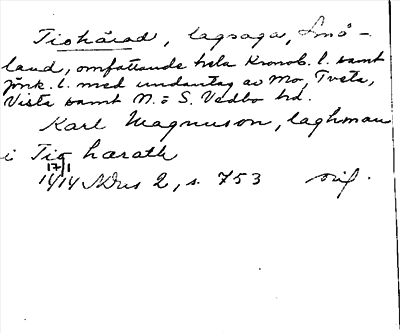 Tiohärad, lagsaga, Små-
land, omfattande hela Kronob. l. samt
Jönk. l. med undantag av Mo, Tveta,
Vista samt N. = S. Vedbo hd.
Karl Magnuson, laghman
i Tig harath
17/1
1414 NDns 2, s. 753